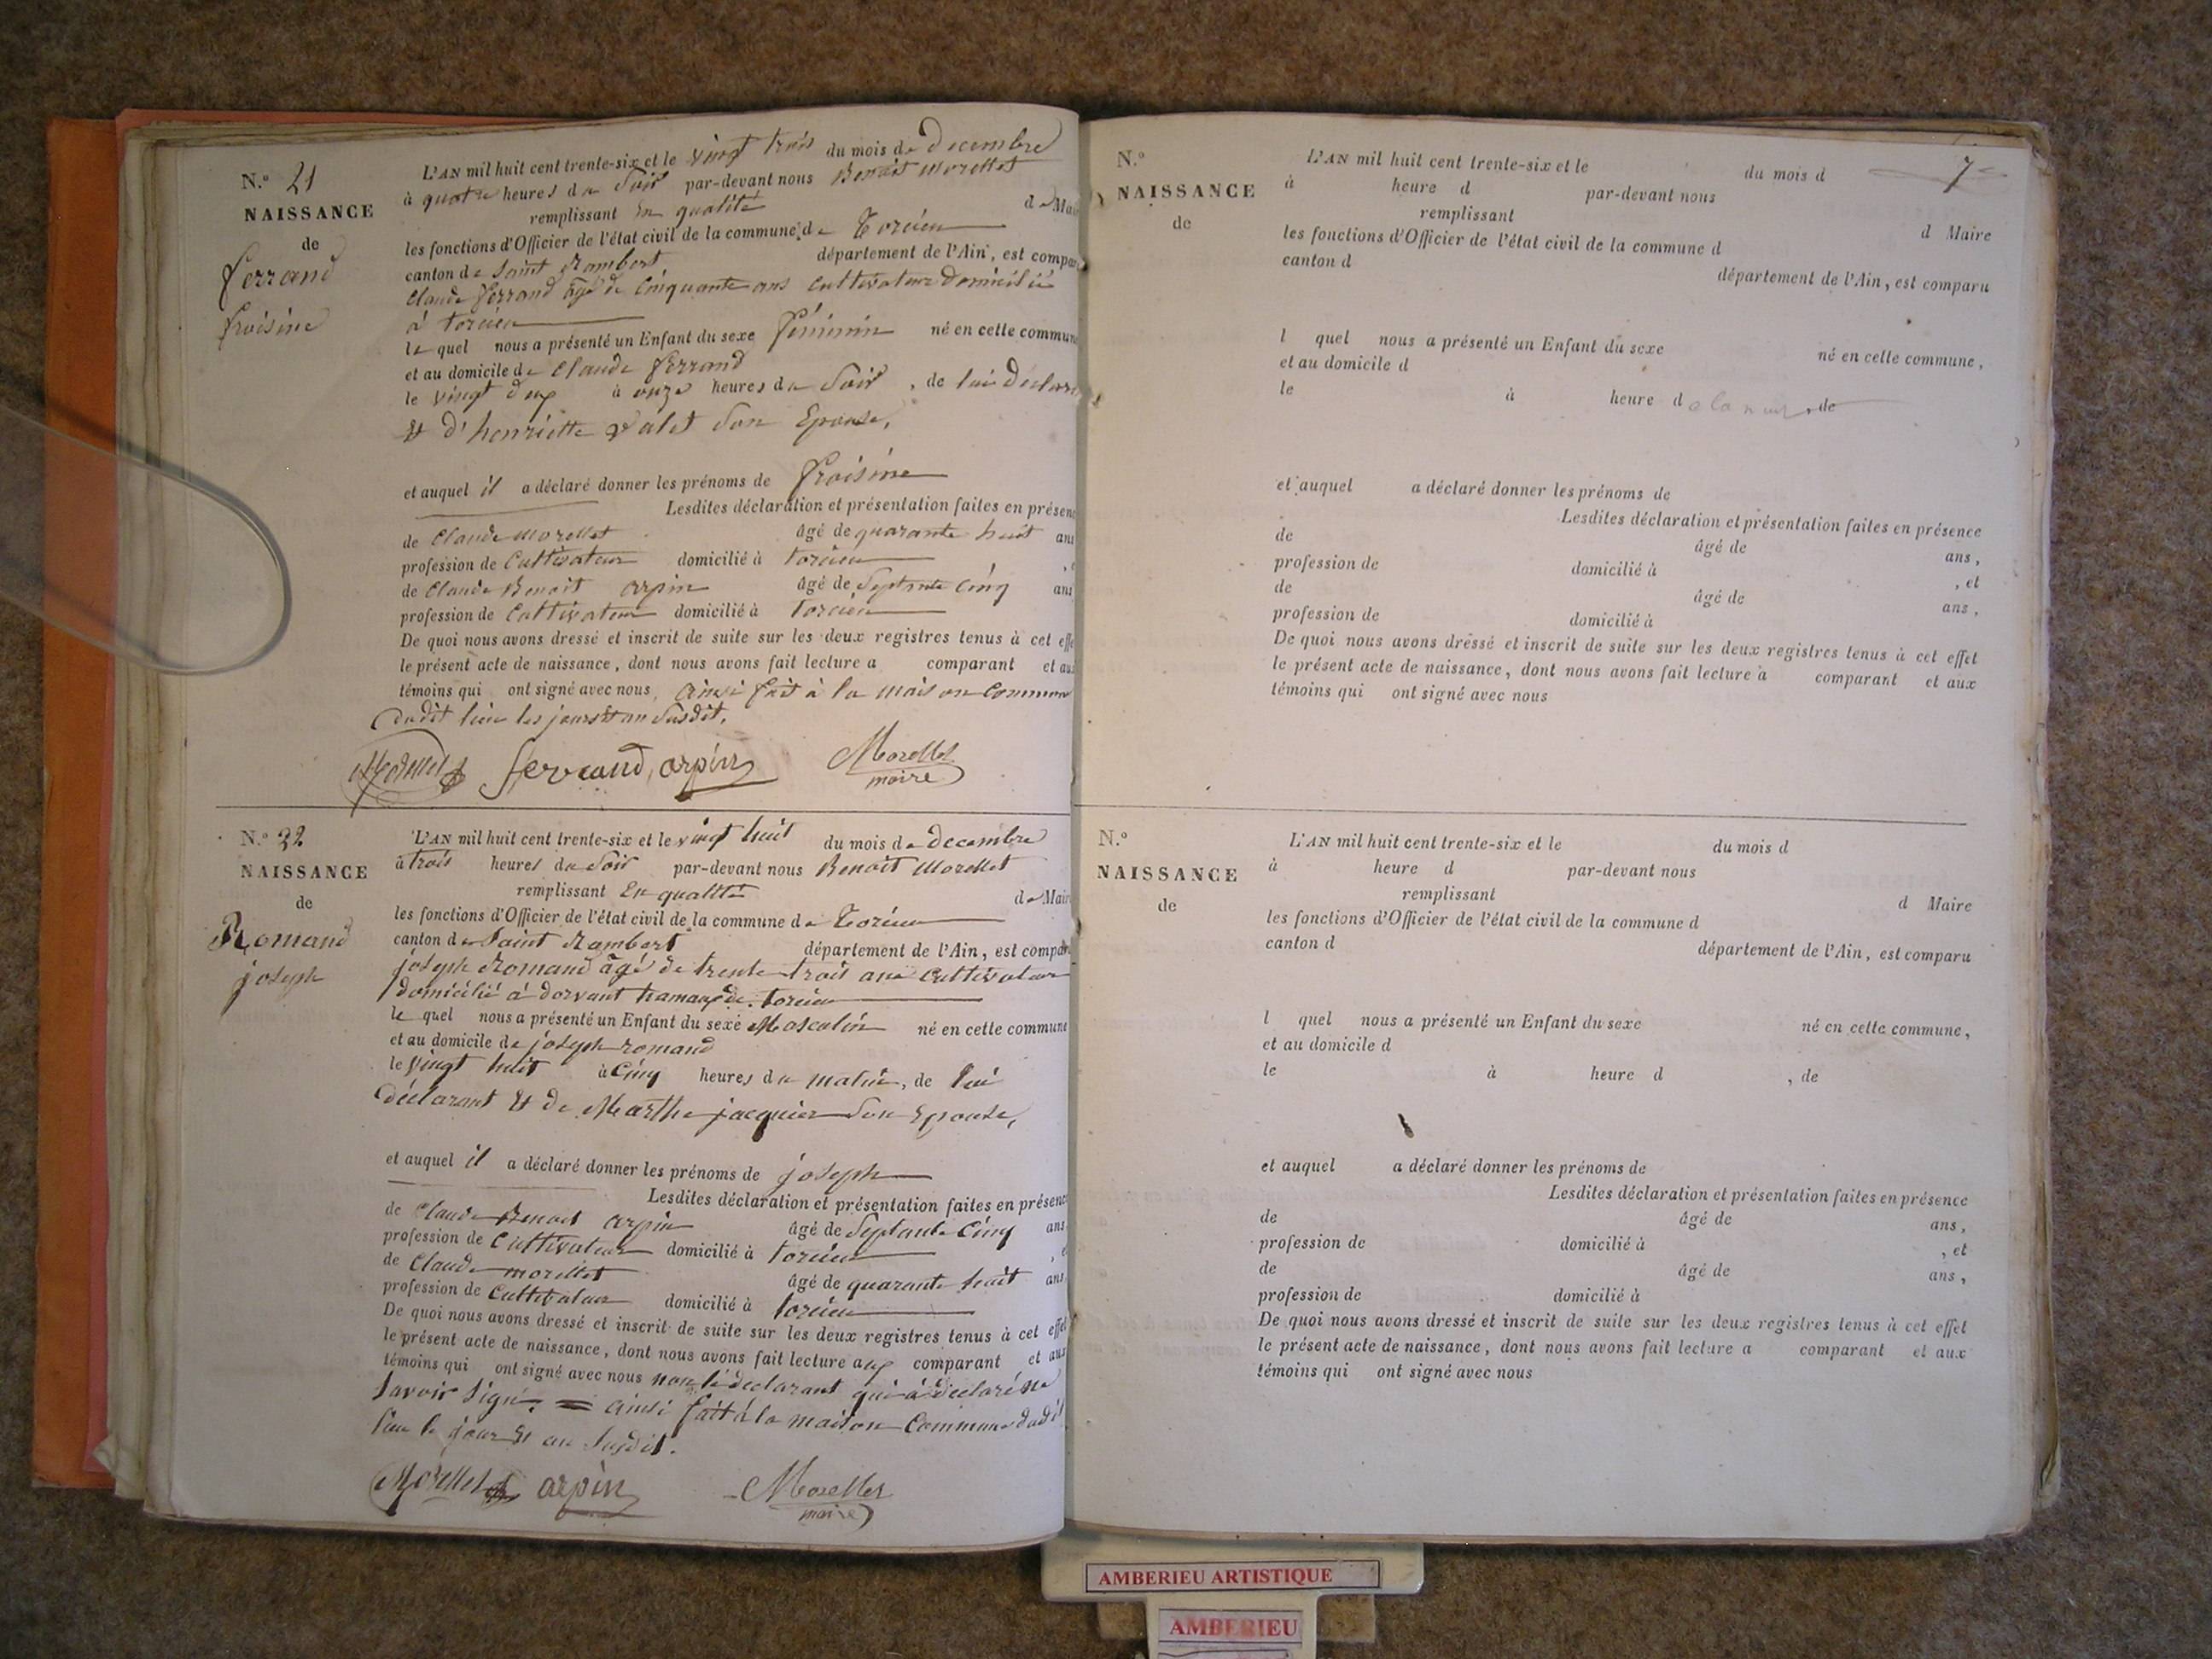 N.º 21
NAISSANCE
de
ferrand
froisine
L'AN mil huit cent trente-six et le vingt trois du mois de Decembre
à quatre heures du Soir par-devant nous Benoit Morellet
remplissant En qualité de Mai
les fonctions d'Officier de l'état civil de la commune de Torcieu
canton de Saint Rambert département de l'Ain, est compar
Claude ferrand âgé de Cinquante ans Cultivateur Domicilié
à torcieu
le quel nous a présenté un Enfant du sexe féminin né en cette commun
et au domicile de Claude ferrand
le vingt deux à onze heures du Soir, de lui Déclara
Et d'henriette valet Son Epouse,
et auquel il a déclaré donner les prénoms de froisine
Lesdites déclaration et présentation faites en présenc
de Claude Morellet âgé de quarante huit ans
profession de Cultivateur domicilié à torcieu
de Claude Benoit arpin âgé de Septante Cinq ans
profession de Cultivateur domicilié à Torcieu
De quoi nous avons dressé et inscrit de suite sur les deux registres tenus à cet effe
le présent acte de naissance, dont nous avons fait lecture a comparant et aux
témoins qui ont signé avec nous, ainsi fait à la maison Commune
Dudit lieu les jours et an Susdit.
Morellet ferrand arpin Morellet
maire
N.º 22
NAISSANCE
de
Romand
joseph
L'AN mil huit cent trente-six et le vingt huit du mois de decembre
à trois heures du Soir par-devant nous Benoit Morellet
remplissant En qualité de Mair
les fonctions d'Officier de l'état civil de la commune de Torcieu
canton de Saint Rambert département de l'Ain, est compar
joseph Romand âgé de trente trois ans Cultivateur
domicilié à dorvant hamau de torcieu
le quel nous a présenté un Enfant du sexe Masculin né en cette commune
et au domicile de joseph romand
le vingt huit à Cinq heures du matin, de lui
déclarant Et de Marthe jacquier Son Epouse,
et auquel il a déclaré donner les prénoms de joseph
Lesdites déclaration et présentation faites en présenc
de Claude Benoit arpin âgé de Septante Cinq ans
profession de Cultivateur domicilié à torcieu
de Claude morellet âgé de quarante huit ans
profession de Cultivateur domicilié à torcieu
De quoi nous avons dressé et inscrit de suite sur les deux registres tenus à cet effet
le présent acte de naissance, dont nous avons fait lecture aux comparant et aux
témoins qui ont signé avec nous non le declarant qui à déclaré ne
Savoir Signé. = ainsi fait à la maison Commune dudit
lieu le jour Et an Susdit.
Morellet arpin Morellet
maire
7
N.º
NAISSANCE
de
L'AN mil huit cent trente-six et le du mois d
à heure d par-devant nous
remplissant d Maire
les fonctions d'Officier de l'état civil de la commune d
canton d département de l'Ain, est comparu
l quel nous a présenté un Enfant du sexe né en cette commune,
et au domicile d
le à heure d , de
et auquel a déclaré donner les prénoms de
Lesdites déclaration et présentation faites en présence
de âgé de ans,
profession de domicilié à , et
de âgé de ans,
profession de domicilié à
De quoi nous avons dressé et inscrit de suite sur les deux registres tenus à cet effet
le présent acte de naissance, dont nous avons fait lecture à comparant et aux
témoins qui ont signé avec nous
N.º
NAISSANCE
de
L'AN mil huit cent trente-six et le du mois d
à heure d par-devant nous
remplissant d Maire
les fonctions d'Officier de l'état civil de la commune d
canton d département de l'Ain, est comparu
l quel nous a présenté un Enfant du sexe né en cette commune,
et au domicile d
le à heure d , de
et auquel a déclaré donner les prénoms de
Lesdites déclaration et présentation faites en présence
de âgé de ans,
profession de domicilié à , et
de âgé de ans,
profession de domicilié à
De quoi nous avons dressé et inscrit de suite sur les deux registres tenus à cet effet
le présent acte de naissance, dont nous avons fait lecture a comparant et aux
témoins qui ont signé avec nous
AMBERIEU ARTISTIQUE
AMBERIEU